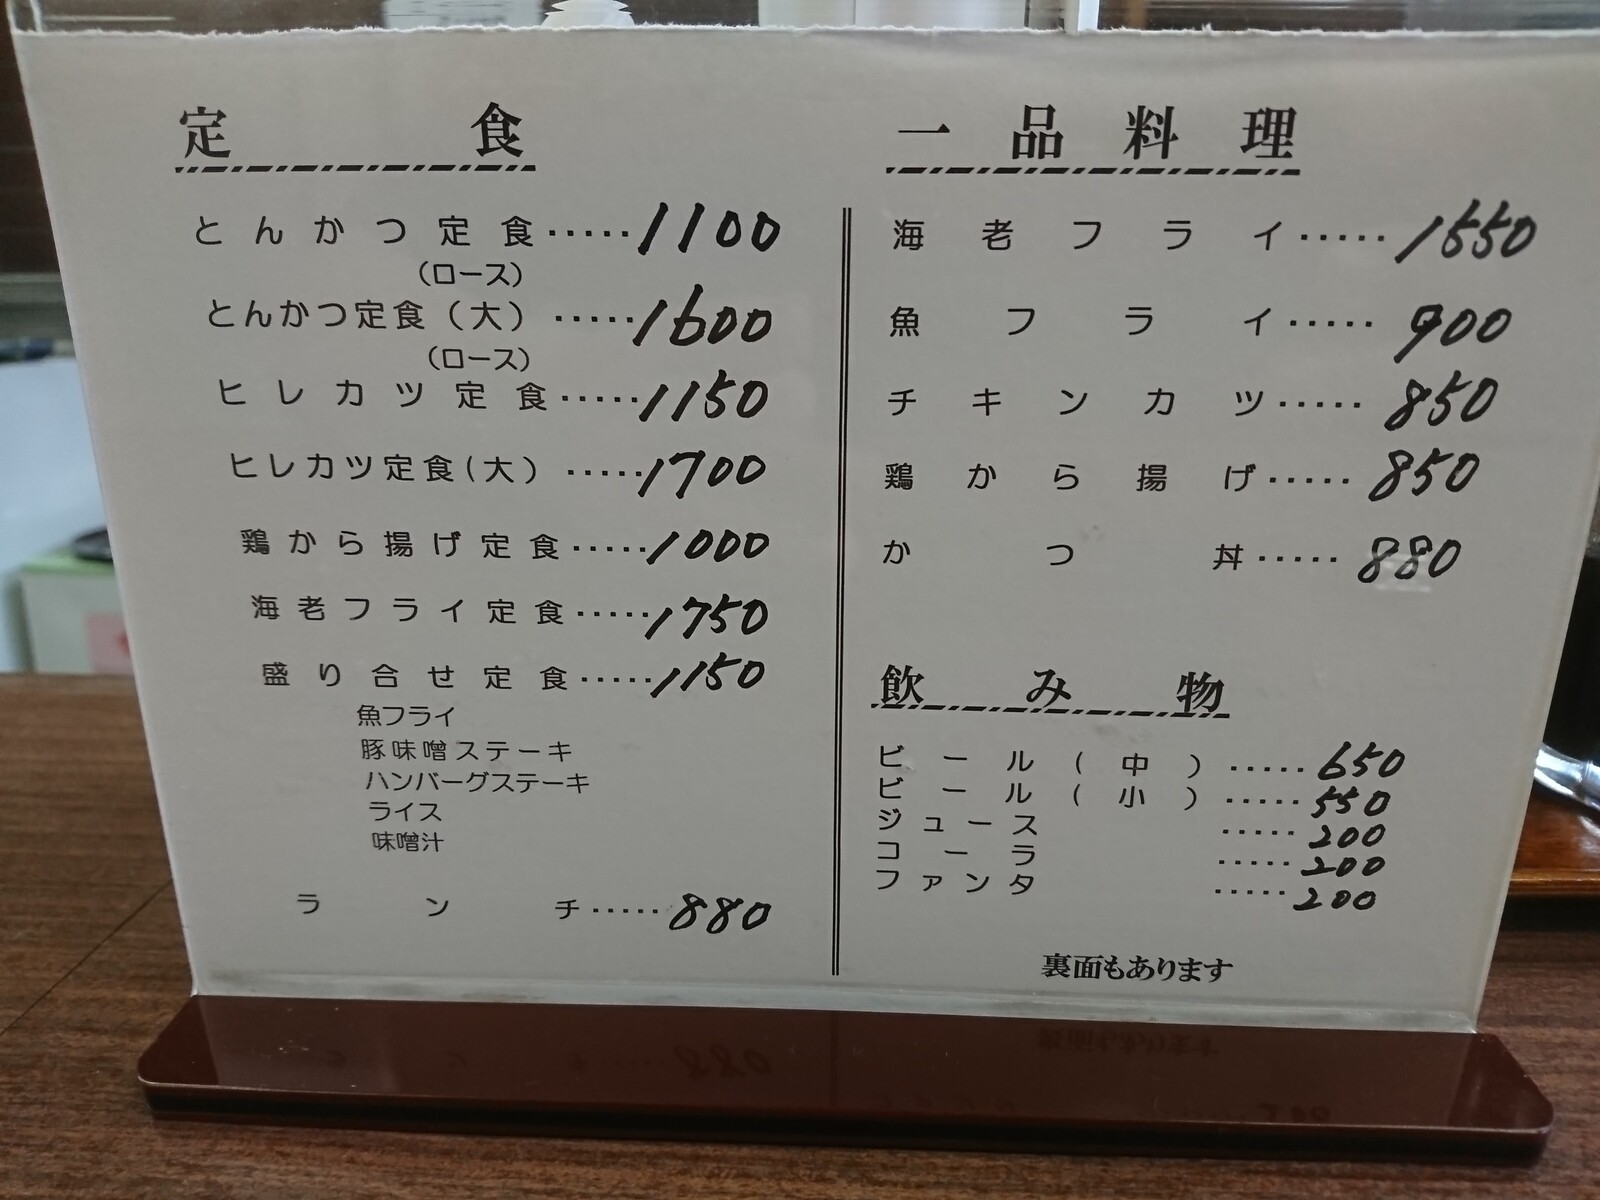 定食
とんかつ定食・・・・・1100
(ロース)
とんかつ定食(大)・・・・・1600
(ロース)
ヒレカツ定食・・・・・1150
ヒレカツ定食(大)・・・・・1700
鶏から揚げ定食・・・・・1000
海老フライ定食・・・・・1750
盛り合せ定食・・・・・1150
魚フライ
豚味噌ステーキ
ハンバーグステーキ
ライス
味噌汁
ランチ・・・・・880
一品料理
海老フライ・・・・・1550
魚フライ・・・・・900
チキンカツ・・・・・850
鶏から揚げ・・・・・850
かつ丼・・・・・880
飲み物
ビール(中)・・・・・650
ビール(小)・・・・・550
ジュース・・・・・200
コーラ・・・・・200
ファンタ・・・・・200
裏面もあります